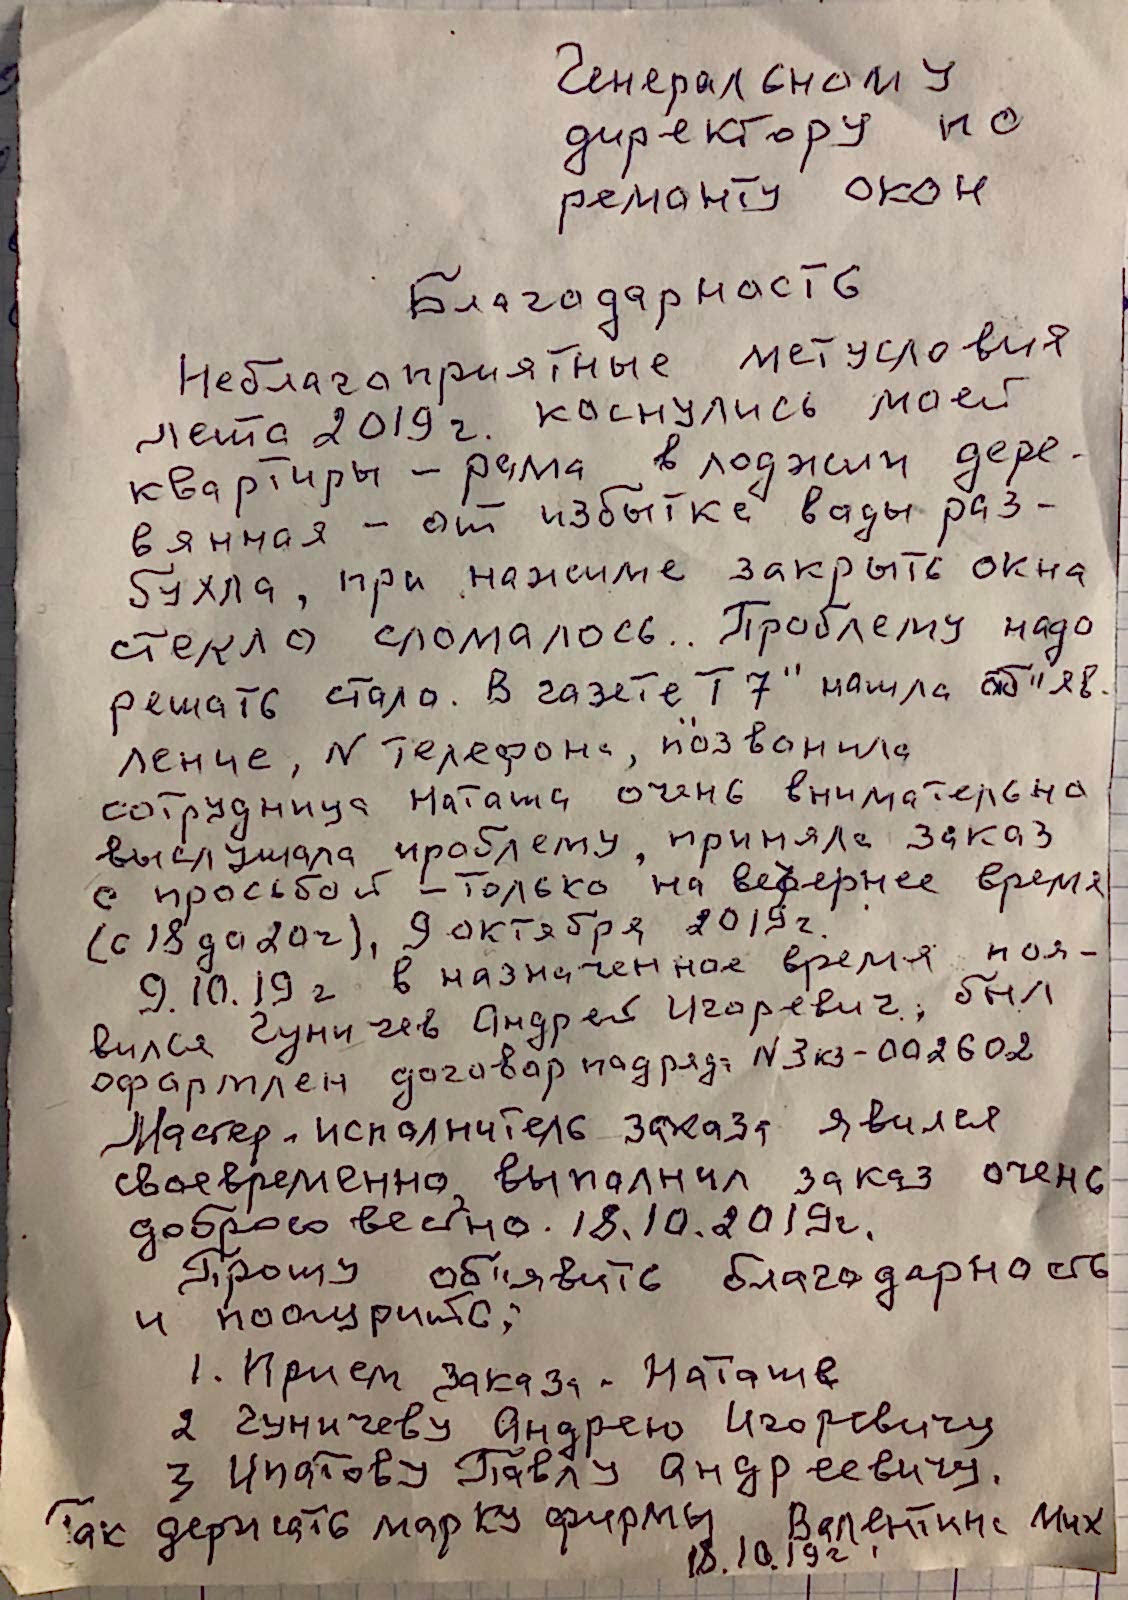 Генеральному
директору по
ремонту окон
Благодарность
Неблагоприятные метусловия
лета 2019г. коснулись моей
квартиры – рама в лоджии дере-
вянная – от избытка воды раз-
бухла, при нажиме закрыть окна
стекло сломалось.. Проблему надо
решать стало. В газете Т 7" нашла об"яв.
ление, N телефона, позвонила
сотрудница Наташа очень внимательно
выслушала проблему, приняла заказ
с просьбой – только на вечернее время
(с 18 до 20ч), 9 октября 2019г.
9.10.19г в назначенное время поя-
вился Гуничев Андрей Игоревич; был
оформлен договор подряда N Зкз-002602
Мастер-исполнитель заказа явился
своевременно, выполнил заказ очень
добросовестно. 18.10.2019г.
Прошу об"явить благодарность
и поощрить;
1. Прием заказа - Наташе
2 Гуничеву Андрею Игоревичу
3 Ипатову Павлу Андреевичу.
Так держать марку фирмы Валентина Мих
18.10.19г.